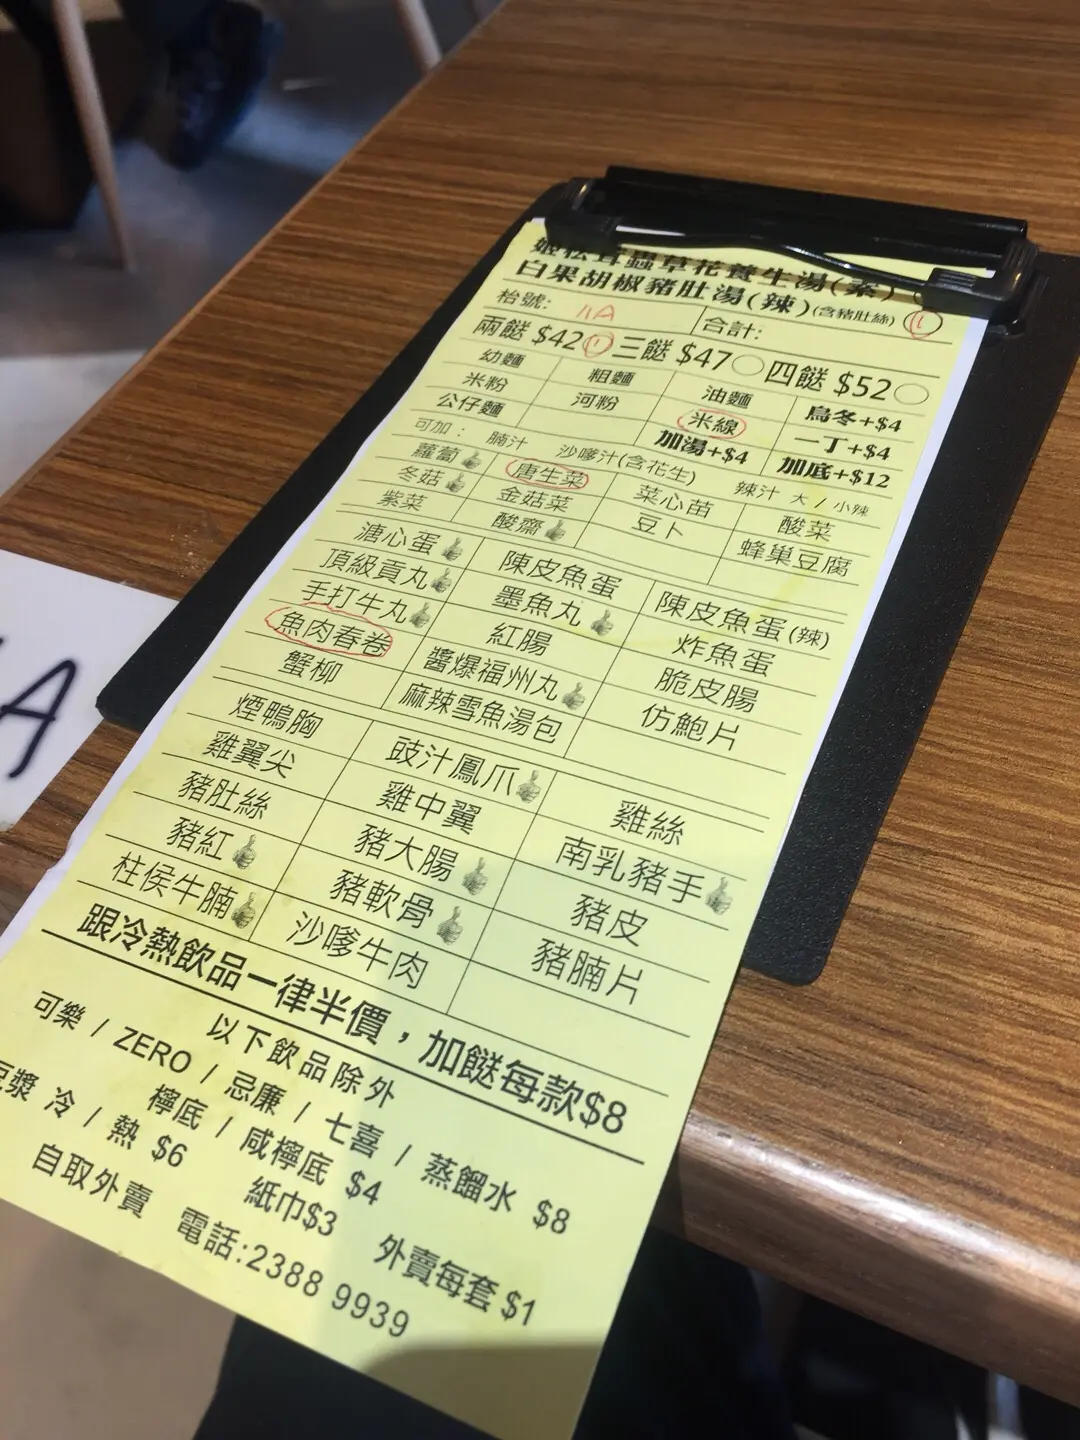 姬松茸蟲草花養生湯(素)
白果胡椒豬肚湯(辣)(含豬肚絲) 1
枱號: 11A 合計:
兩餸 $42 1 三餸 $47 四餸 $52
幼麵 粗麵 油麵 烏冬+$4
米粉 河粉 米線 一丁+$4
公仔麵 加湯+$4 加底+$12
可加: 腩汁 沙嗲汁(含花生) 辣汁 大 / 小辣
蘿蔔 唐生菜 菜心苗 酸菜
冬菇 金菇菜 豆卜 蜂巢豆腐
紫菜 酸齋
溏心蛋 陳皮魚蛋 陳皮魚蛋(辣)
頂級貢丸 墨魚丸 炸魚蛋
手打牛丸 紅腸 脆皮腸
魚肉春卷 醬爆福州丸 仿鮑片
蟹柳 麻辣雪魚湯包
煙鴨胸 豉汁鳳爪 雞絲
雞翼尖 雞中翼 南乳豬手
豬肚絲 豬大腸 豬皮
豬紅 豬軟骨 豬腩片
柱侯牛腩 沙嗲牛肉
跟冷熱飲品一律半價，加餸每款$8
以下飲品除外
可樂 / ZERO / 忌廉 / 七喜 / 蒸餾水 $8
檸底 / 咸檸底 $4
豆漿 冷 / 熱 $6 紙巾$3 外賣每套$1
自取外賣 電話:2388 9939
A